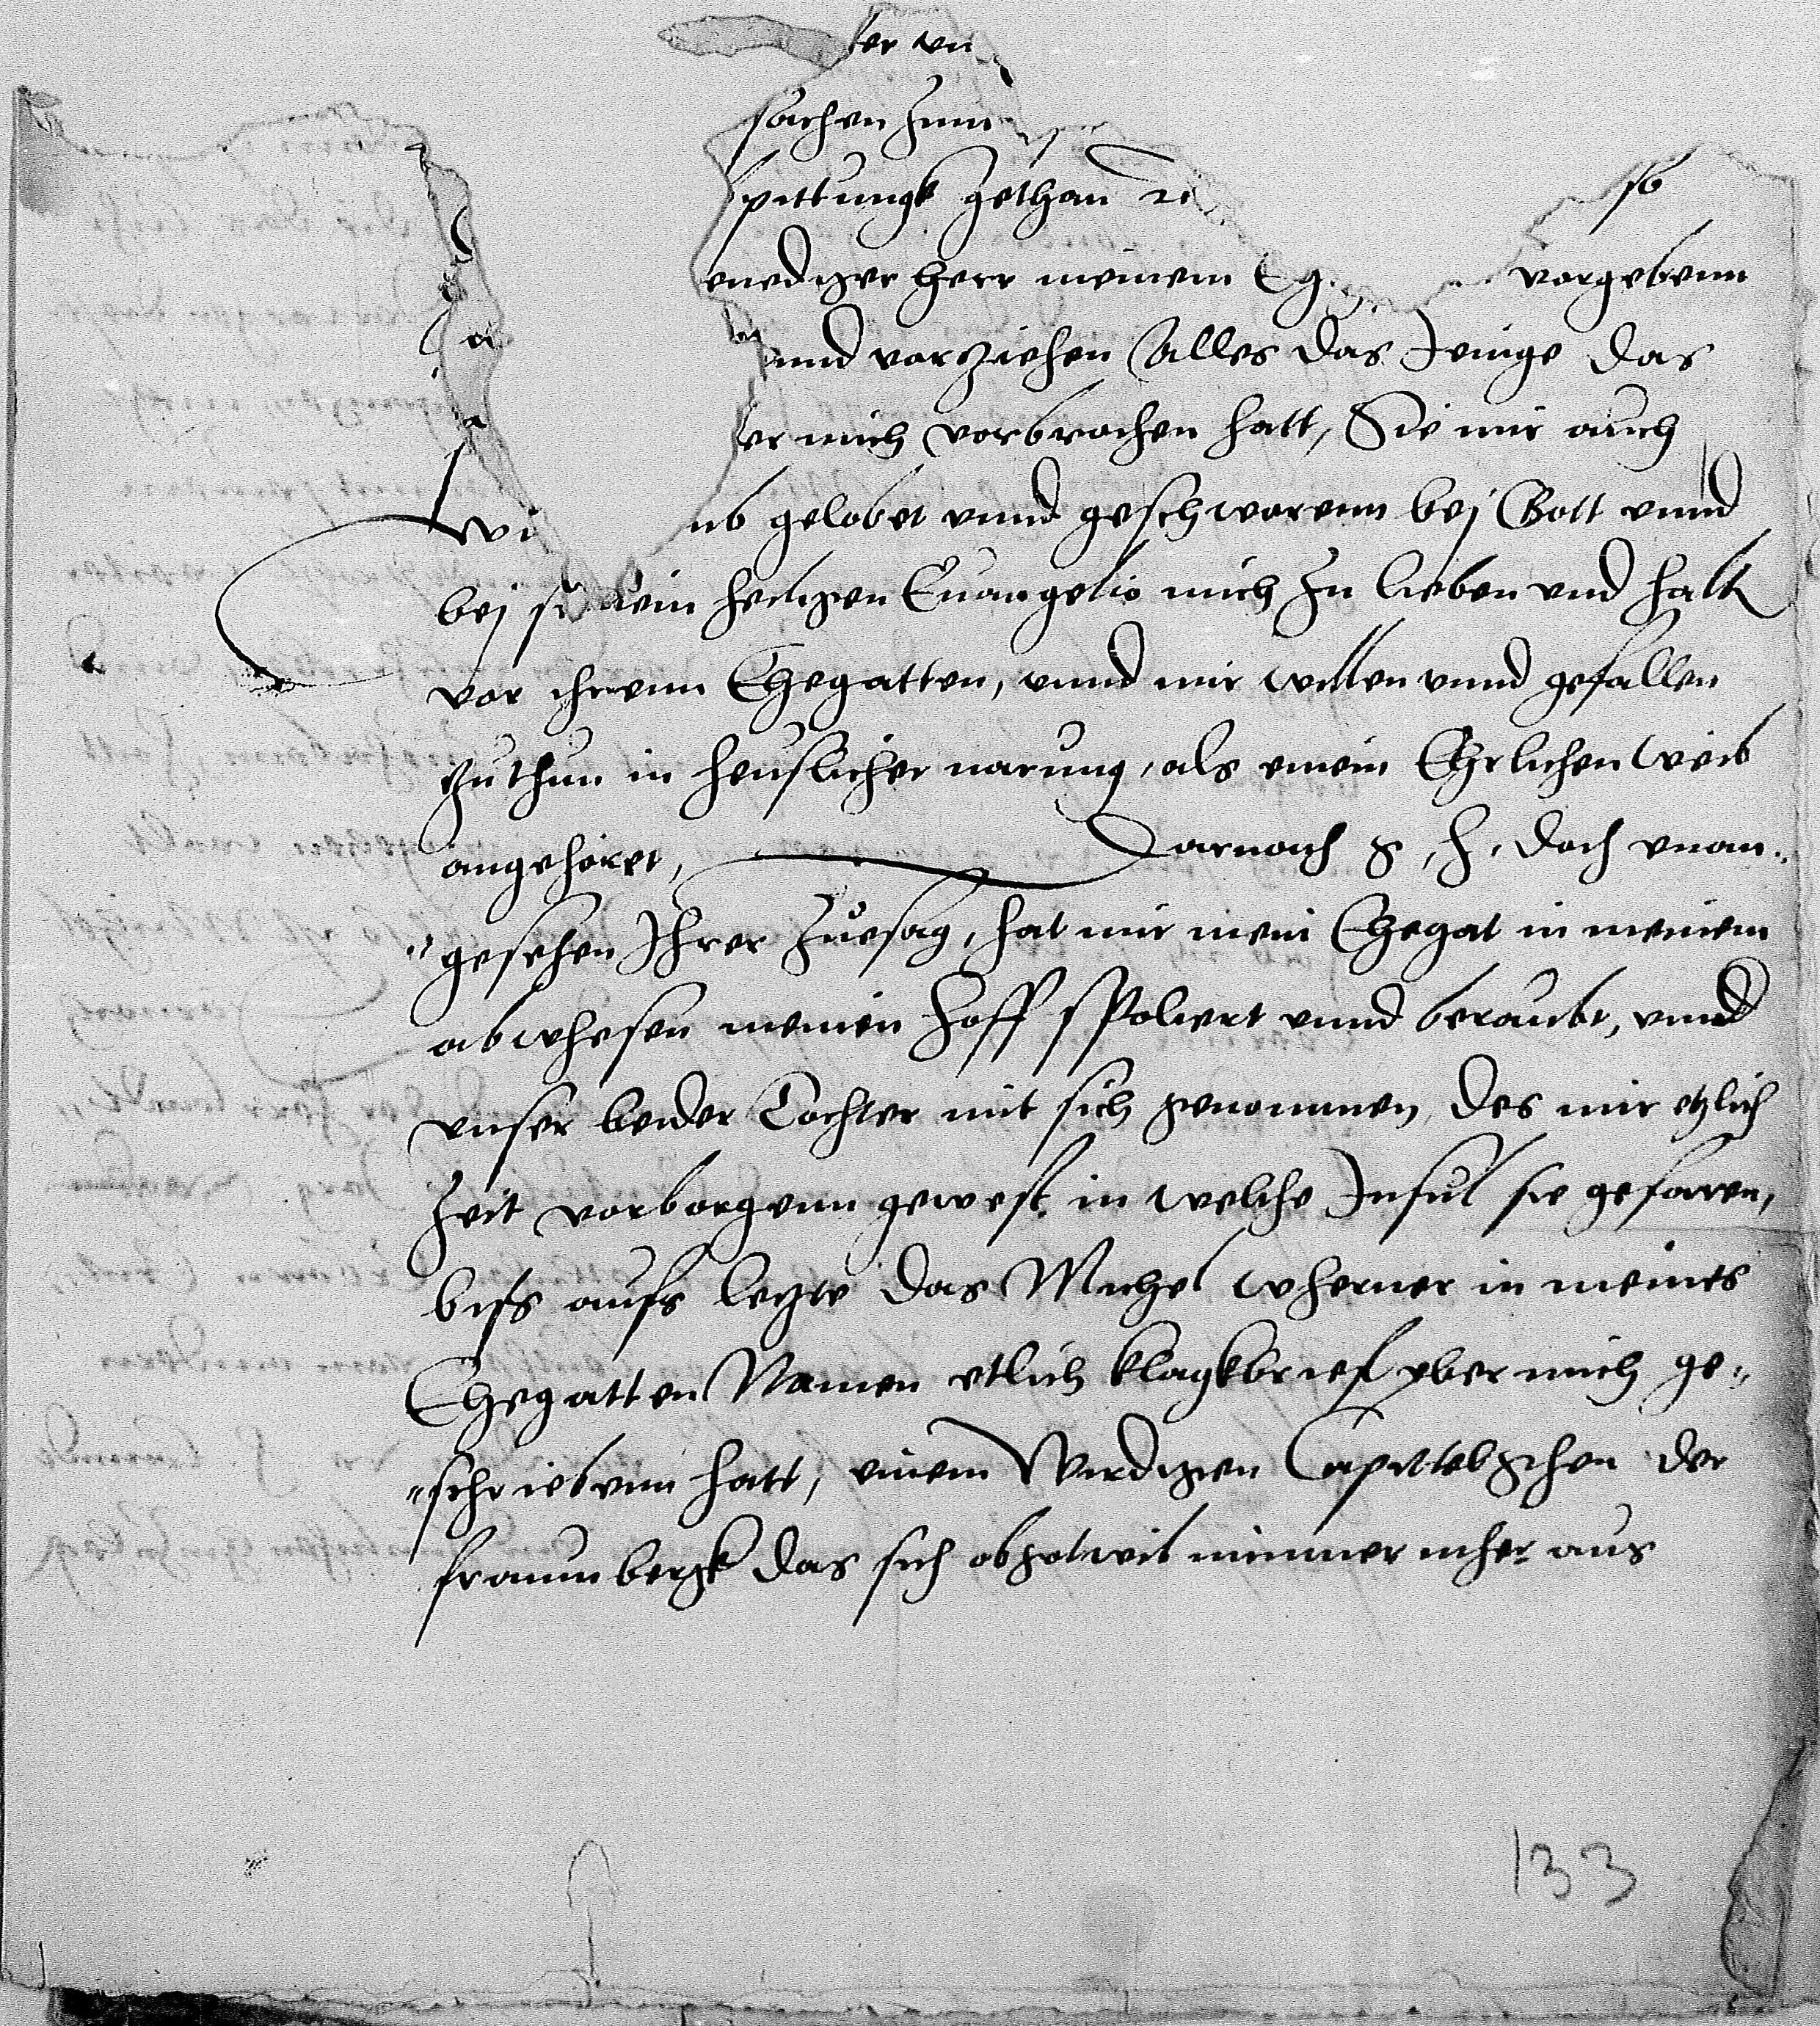 ter vn
sachen zum
pittungk gethan
so
enediger herr meinem Eg vorgebenn
vnnd vorziehen Alles das Jenige das
er mich vorbrochen hatt, Sie mir auch
wi ub gelobet vnnd geschworenn bej Gott vnnd
bej seinem heiligen Euangelio mich zu lieben vnd halt
vor ihrenn Ehegatten, vnnd mir willen vnnd gefallen
zuthun in heuslicher narung, als einem Ehrlichen weib
angehöret, Darnach g, h, doch vnan-
gesehen Ihrer Zuesag, hat mir mein Ehegat in meinem
abwhesen meinen hoff spoliert vnnd beraubt, vnnd
vnser beider Tochter mit sich genommen, des mir etzlich
Zeit vorborgenn gewest in welche Insul sie gefaren,
biss aufs letzte das Michel wherner in meines
Ehegatten Namen etlich klagkbrief yber mich ge-
schriebenn hatt, einem Wirdigen Capittel zchen der
fraunbergk das sich mein weib nimmer mher aus
133